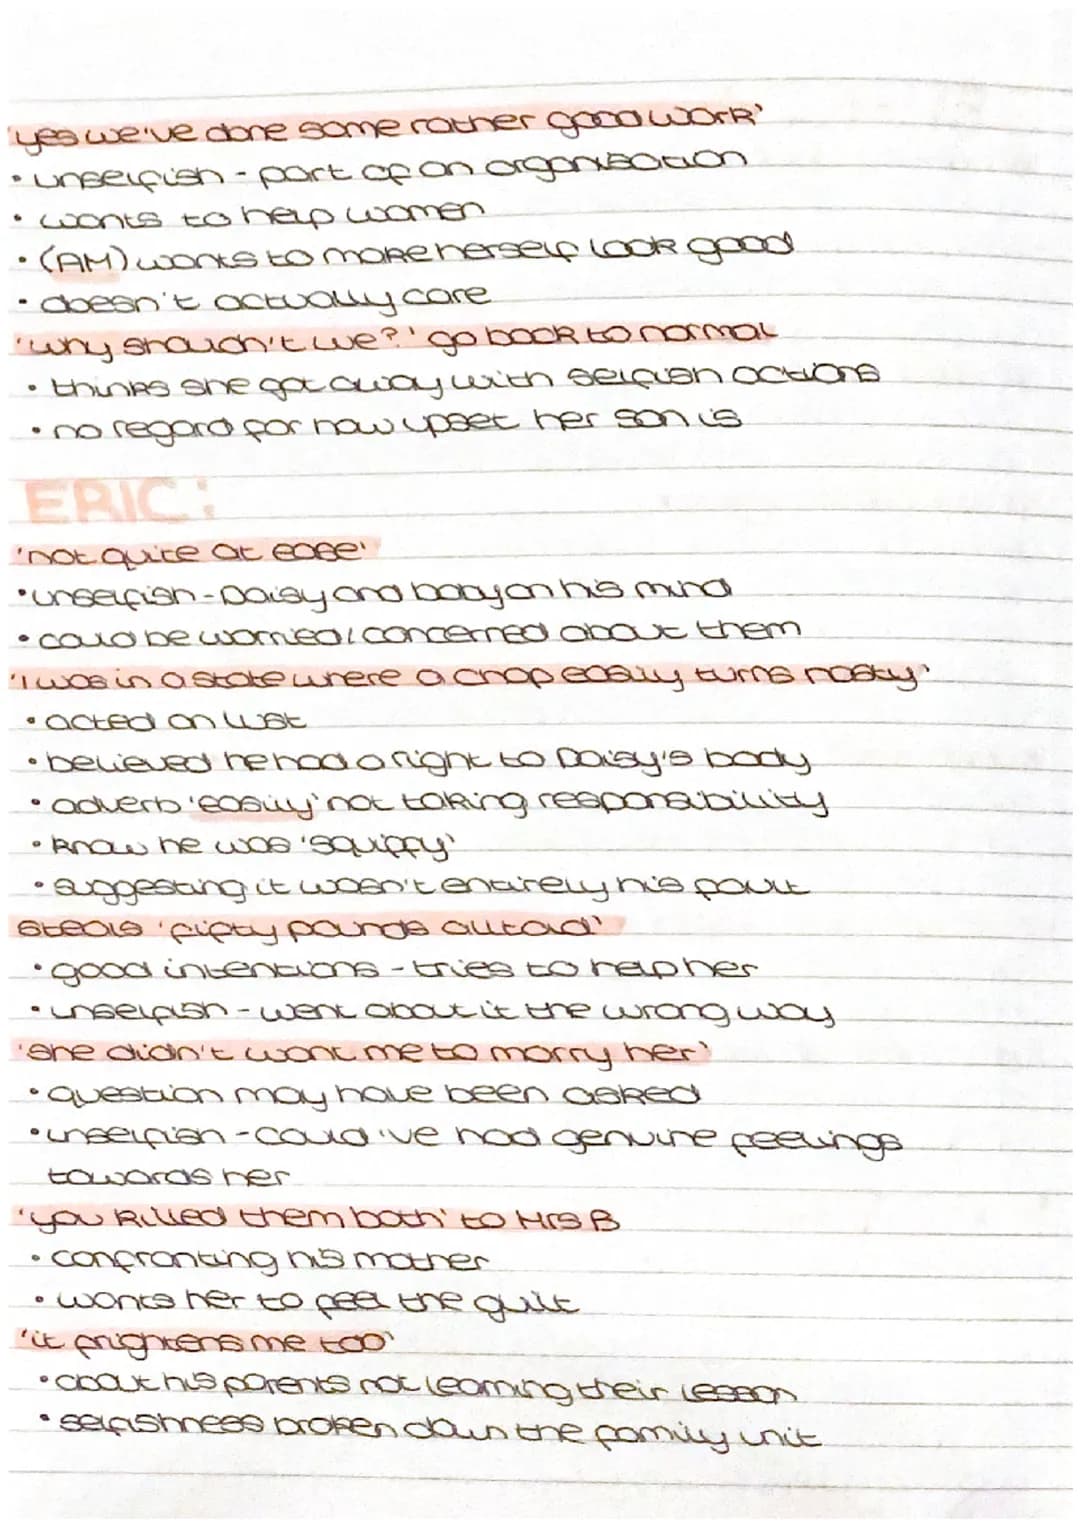 'yes we've done some rather good work'
• unselfish - part of an organisation
• wants to help women
• (AM) wants to make herself look good
• doesn't actually care
'why shouldn't we?' go back to normal
• thinks she got away with selfish actions
• no regard for how upset her son is
ERIC:
'not quite at ease'
• unselfish - Daisy and baby on his mind
• could be worried/concerned about them
'I was in a state where a chap easily turns nasty'
• acted on lust
• believed he had a right to Daisy's body
• adverb 'easily' not taking responsibility
• know he was 'squiffy'
• suggesting it wasn't entirely his fault
steals 'fifty pounds all told'
• good intentions - tries to help her
• unselfish - went about it the wrong way
'she didn't want me to marry her'
• question may have been asked
• unselfish - could've had genuine feelings
towards her
'you killed them both' to Mrs B
• confronting his mother
• wants her to feel the guilt
'it frightens me too'
• about his parents not learning their lesson
• selfishness broken down the family unit